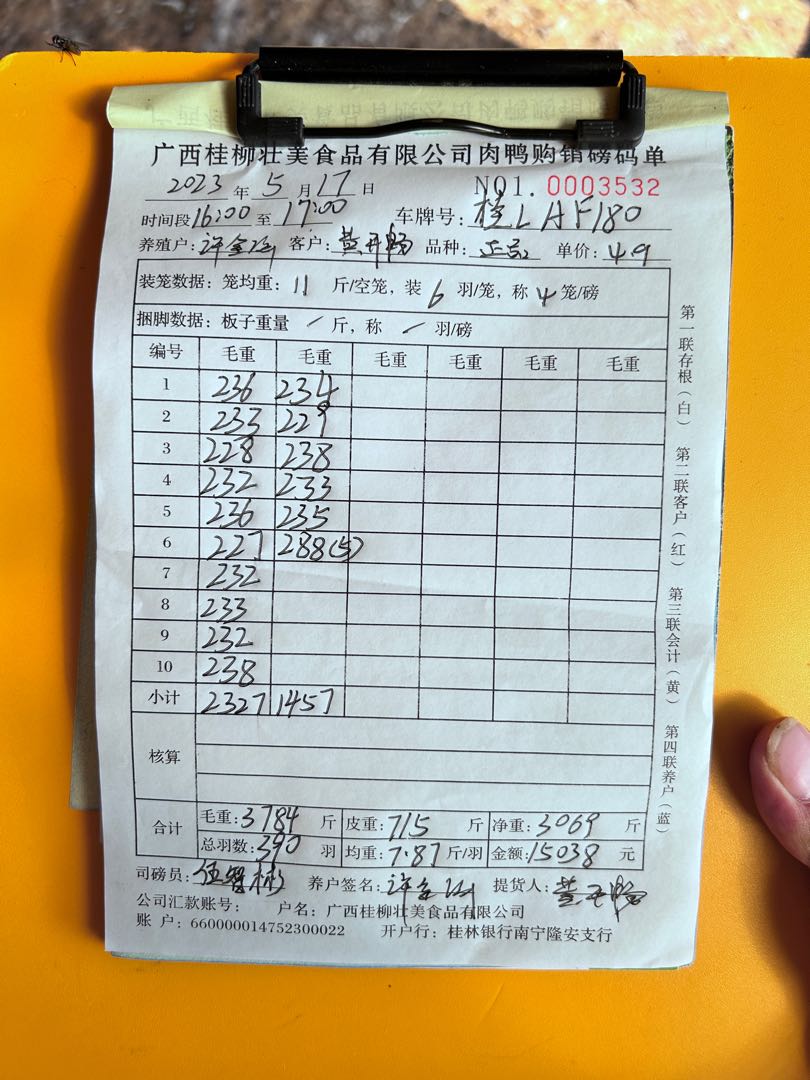 广西桂柳壮美食品有限公司肉鸭购销磅码单
2023 年 5 月 17 日 NO1. 0003532
时间段 16:00 至 17:00 车牌号: 桂LAF180
养殖户: 许 客户: 黄开畅 品种: 正品 单价: 4.9
装笼数据: 笼均重: 11 斤/空笼, 装 6 羽/笼, 称 4 笼/磅
捆脚数据: 板子重量 / 斤, 称 / 羽/磅
编号 毛重 毛重 毛重 毛重 毛重 毛重
1 236 234
2 233 229
3 228 238
4 232 233
5 236 235
6 227 288(5)
7 232
8 233
9 232
10 238
小计 2327 1457
核算
合计 毛重: 3784 斤 皮重: 715 斤 净重: 3069 斤
总羽数: 390 羽 均重: 7.87 斤/羽 金额: 15038 元
司磅员: 伍智彬 养户签名: 许 提货人: 黄开畅
公司汇款账号: 户名: 广西桂柳壮美食品有限公司
账 户: 660000014752300022 开户行: 桂林银行南宁隆安支行
第一联存根(白) 第二联客户(红) 第三联会计(黄) 第四联养户(蓝)